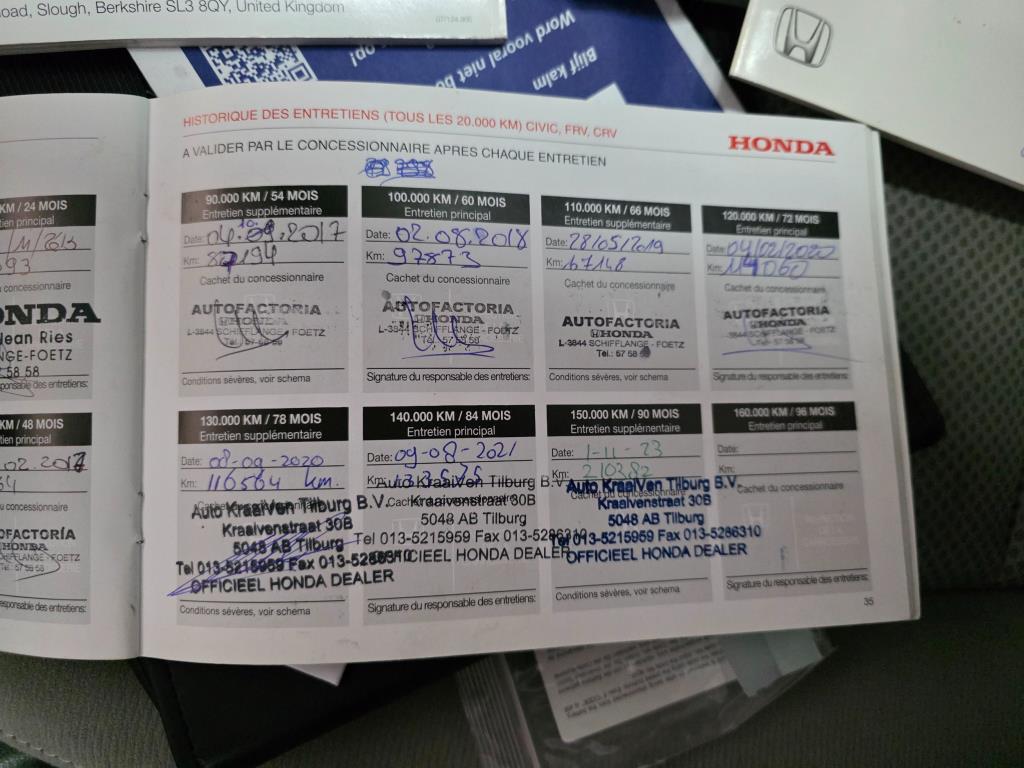 oad, Slough, Berkshire SL3 8QY, United Kingdom
Blijf kalm
Word vooral niet bo
op!
HISTORIQUE DES ENTRETIENS (TOUS LES 20.000 KM) CIVIC, FRV, CRV
HONDA
A VALIDER PAR LE CONCESSIONNAIRE APRES CHAQUE ENTRETIEN
KM / 24 MOIS
tien principal
ONDA
Jean Ries
NGE-FOETZ
58 58
KM / 48 MOIS
tien principal
90.000 KM / 54 MOIS
Entretien supplémentaire
Date:
Km: 87194
Cachet du concessionnaire
AUTOFACTORIA
HONDA
L-3844 SCHIFFLANGE - FOETZ
Conditions sévères, voir schema
100.000 KM / 60 MOIS
Entretien principal
Date: 02.08.2018
Km: 97873
Cachet du concessionnaire
AUTOFACTORIA
HONDA
SCHIFFLANGE - FOETZ
Signature du responsable des entretiens:
110.000 KM / 66 MOIS
Entretien supplémentaire
Date: 28/05/2019
Km:
Cachet du concessionnaire
AUTOFACTORIA
HONDA
L-3844 SCHIFFLANGE - FOETZ
Tél.: 57 58
Conditions sévères, voir schema
120.000 KM / 72 MOIS
Entretien principal
Date: 04/02/2020
Km: 114060
Cachet du concessionnaire
AUTOFACTORIA
HONDA
L-3844 SCHIFFLANGE - FOETZ
Signature du responsable des entretiens:
130.000 KM / 78 MOIS
Entretien supplémentaire
Date: 08-09-2020
Km: 116564 km.
Auto KraaiVen Tilburg B.V.
Kraaivenstraat 30B
5048 AB Tilburg
Tel 013-5215959 Fax 013-5286310
OFFICIEEL HONDA DEALER
Conditions sévères, voir schema
140.000 KM / 84 MOIS
Entretien principal
Date: 09-08-2021
Km:
Auto KraaiVen Tilburg B.V.
Kraaivenstraat 30B
5048 AB Tilburg
Tel 013-5215959 Fax 013-5286310
OFFICIEEL HONDA DEALER
Signature du responsable des entretiens:
150.000 KM / 90 MOIS
Entretien supplémentaire
Date: 1-11-23
Km: 210282
Auto KraaiVen Tilburg B.V.
Kraaivenstraat 30B
5048 AB Tilburg
Tel 013-5215959 Fax 013-5286310
OFFICIEEL HONDA DEALER
Conditions sévères, voir schema
160.000 KM / 96 MOIS
Entretien principal
Date:
Km:
Cachet du concessionnaire
Signature du responsable des entretiens:
35